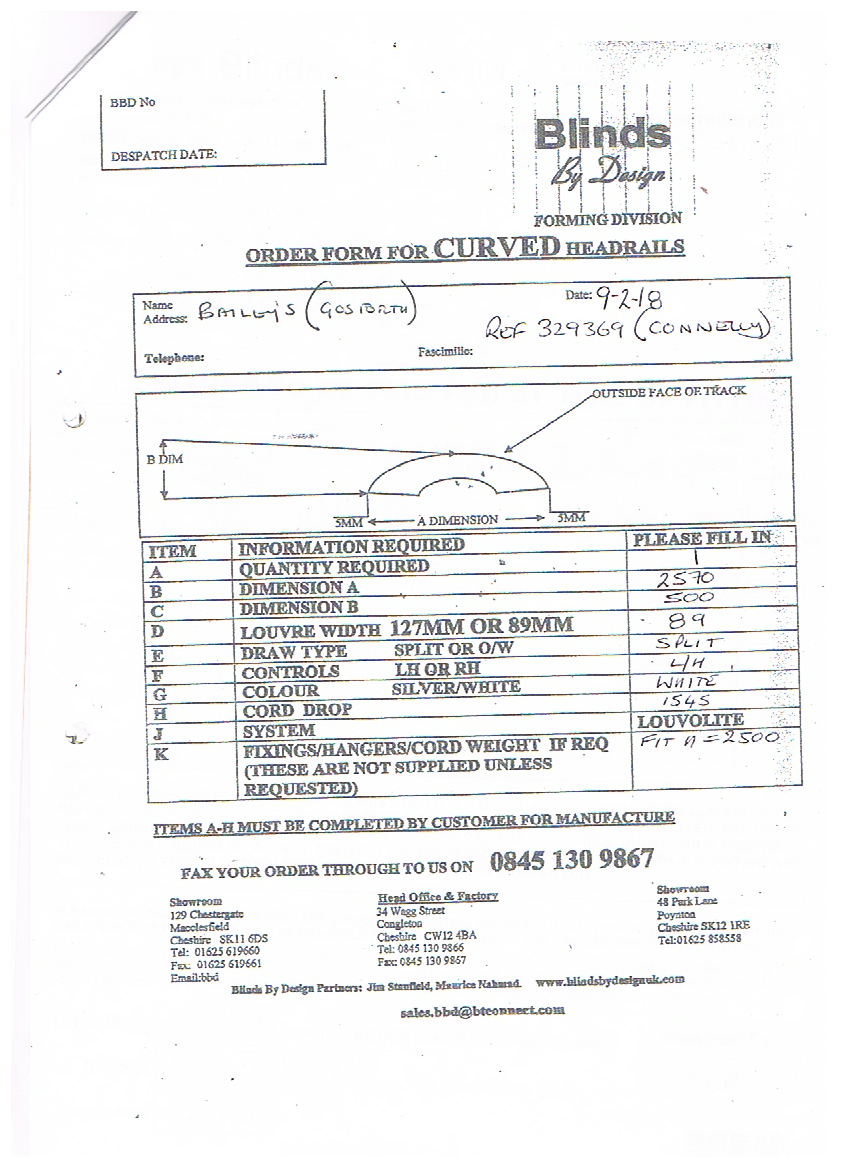 BBD No
DESPATCH DATE:
Blinds
By Design
FORMING DIVISION
ORDER FORM FOR CURVED HEADRAILS
Name
Address: BAILEY'S (GOSFORTH)
Date: 9-2-18
REF 329369 (CONNELLY)
Telephone:
Fascimilie:
OUTSIDE FACE OF TRACK
B DIM
5MM
A DIMENSION
5MM
ITEM INFORMATION REQUIRED PLEASE FILL IN
A QUANTITY REQUIRED 1
B DIMENSION A 2570
C DIMENSION B 500
D LOUVRE WIDTH 127MM OR 89MM 89
E DRAW TYPE SPLIT OR O/W SPLIT
F CONTROLS LH OR RH L/H
G COLOUR SILVER/WHITE WHITE
H CORD DROP 1545
J SYSTEM LOUVOLITE
K FIXINGS/HANGERS/CORD WEIGHT IF REQ FIT = 2500
(THESE ARE NOT SUPPLIED UNLESS
REQUESTED)
ITEMS A-H MUST BE COMPLETED BY CUSTOMER FOR MANUFACTURE
FAX YOUR ORDER THROUGH TO US ON 0845 130 9867
Showroom
129 Chestergate
Macclesfield
Cheshire SK11 6DS
Tel: 01625 619660
Fax: 01625 619661
Email:bbd
Head Office & Factory
34 Wagg Street
Congleton
Cheshire CW12 4BA
Tel: 0845 130 9866
Fax: 0845 130 9867
Showroom
48 Park Lane
Poynton
Cheshire SK12 1RE
Tel:01625 858558
Blinds By Design Partners: Jim Stanfield, Maurice Nahmad. www.blindsbydesignuk.com
sales.bbd@btconnect.com